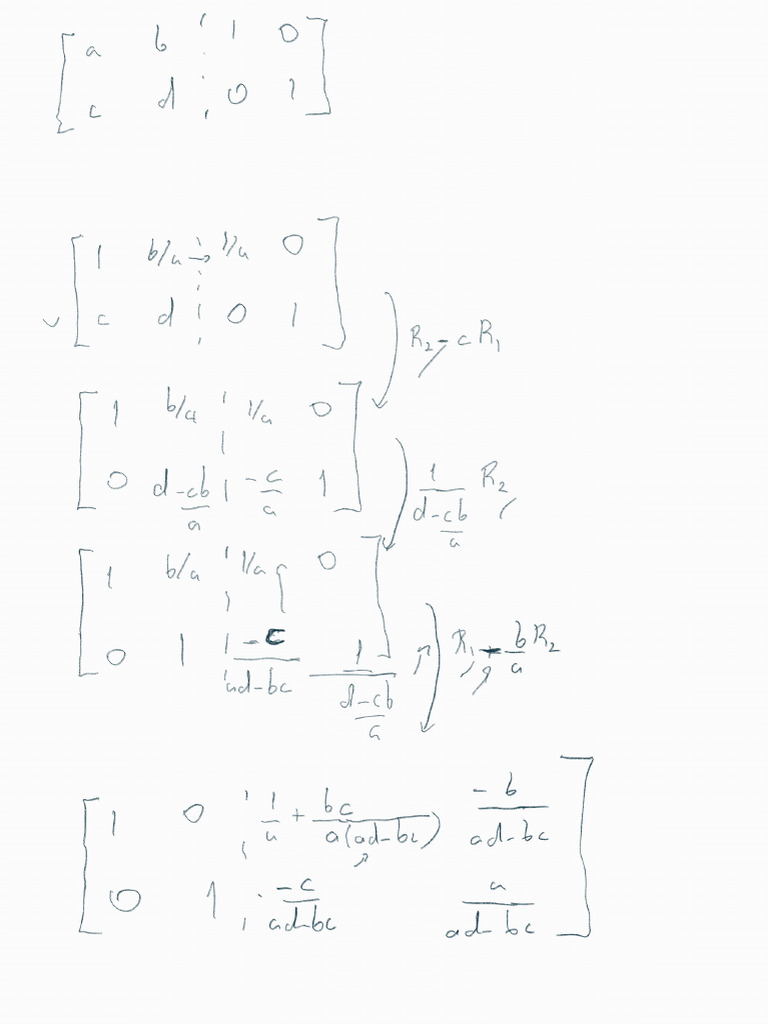 [ a b ¦ 1 0 ]
[ c d ¦ 0 1 ]
[ 1 b/a → ¦ 1/a 0 ]
[ c d ¦ 0 1 ]
R₂ - c R₁
[ 1 b/a ¦ 1/a 0 ]
[ 0 d - cb/a ¦ -c/a 1 ]
1/(d - cb/a) R₂
[ 1 b/a ¦ 1/a 0 ]
[ 0 1 ¦ -c/(ad-bc) 1/(d - cb/a) ]
R₁ - b/a R₂
[ 1 0 ¦ 1/a + bc/(a(ad-bc)) -b/(ad-bc) ]
[ 0 1 ¦ -c/(ad-bc) a/(ad-bc) ]